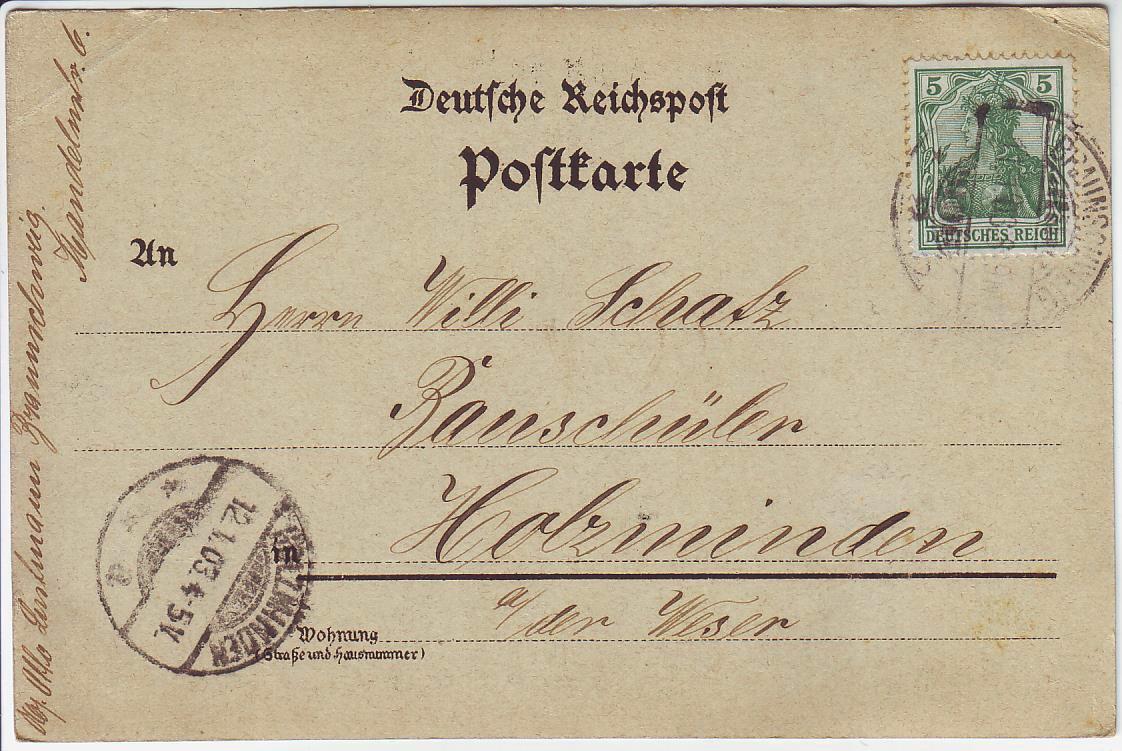 Deutsche Reichspost
Postkarte
5 5
DEUTSCHES REICH
BRAUNSCHWEIG
An
Herrn Willi Schatz
Bauschüler
in Holzminden
Wohnung a/der Weser
(Straße und Hausnummer)
HOLZMINDEN
12.1.03.4-5N.
Abs. Otto Braunschweig.